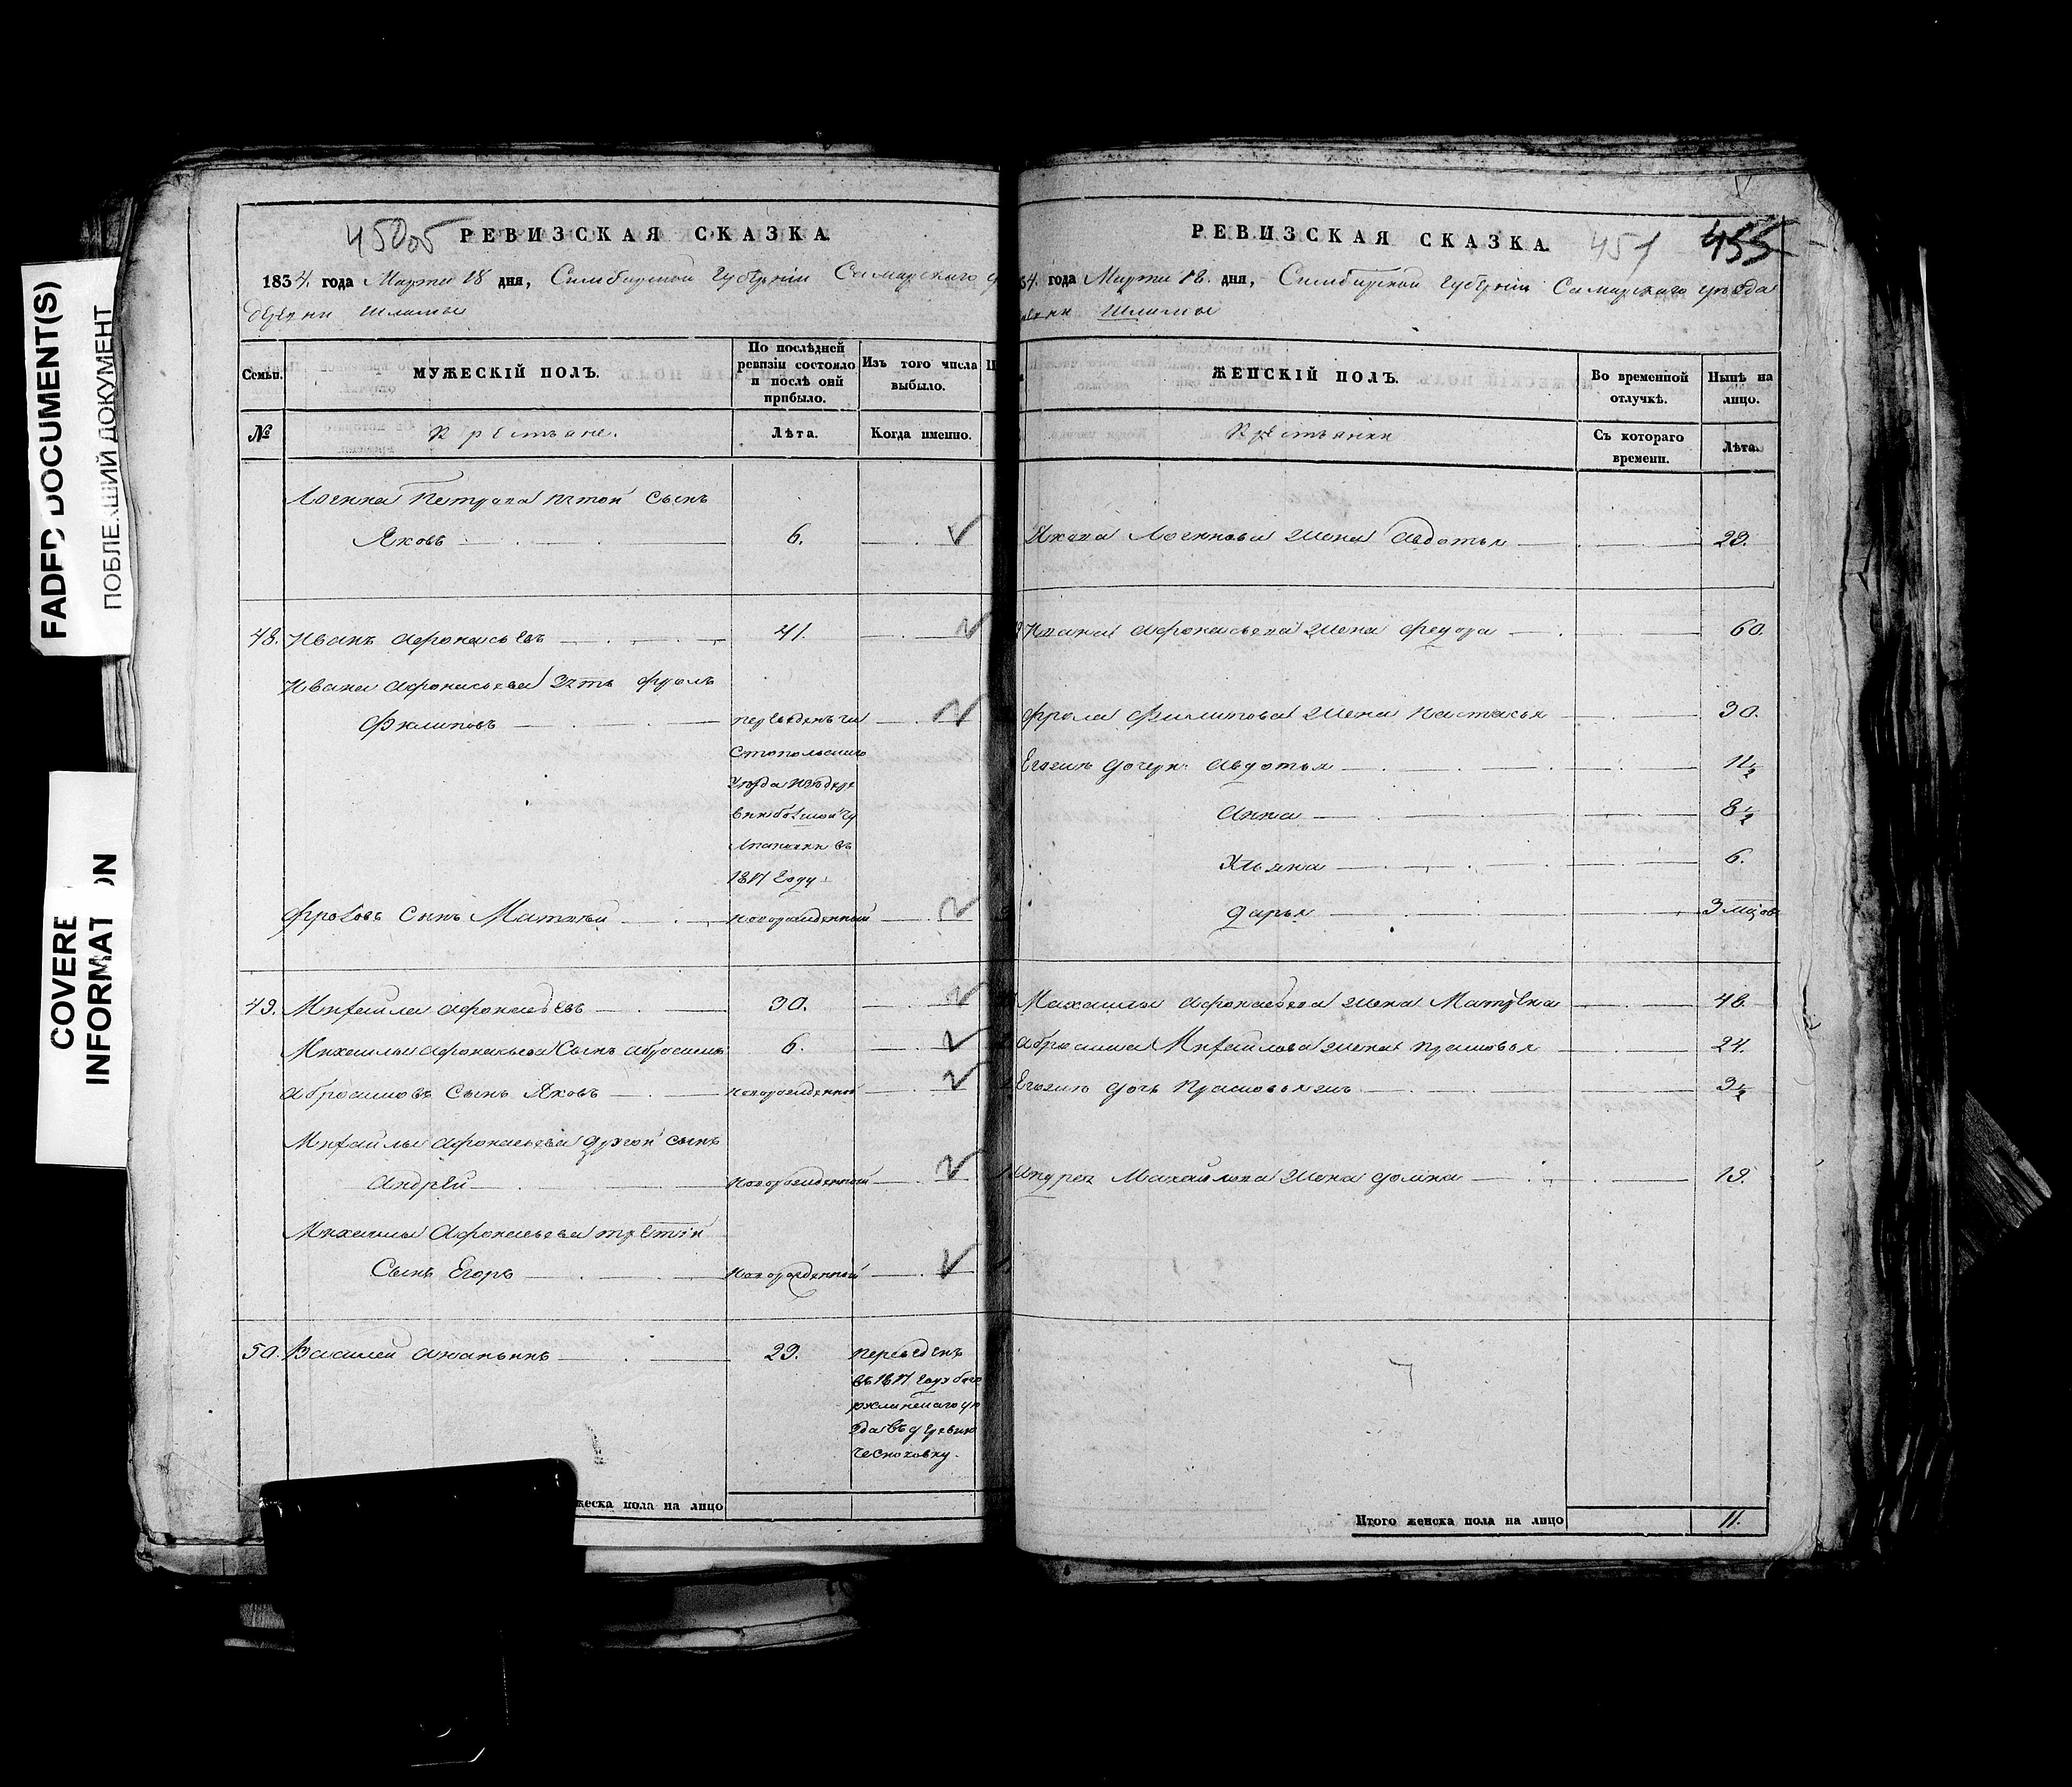 FADED DOCUMENT(S)
ПОБЛЕКШИЙ ДОКУМЕНТ
COVERE
INFORMAT ON
РЕВИЗСКАЯ СКАЗКА.
1834. года Марта 18 дня, Симбирской Губернiи Самарскаго
деревни Шламы
Семьи.
МУЖЕСКІЙ ПОЛЪ.
По послѣдней ревизіи состояло и послѣ оній прибыло.
Изъ того числа выбыло.
№
Крестьяне.
Лѣта.
Когда именно.
Логина Петрова пятой сынъ
Яковъ 6.
48. Иванъ Афонасьевъ 41.
Ивана Афонасьева зять Фролъ
Филиповъ переведенъ
Ставпольскаго
уезда изъ дере
вни
въ
1817 году
Фроловъ сынъ Матвѣй новорожденный
49. Михайла Афонасьевъ 30.
Михайлы Афонасьева сынъ Абросимъ 6.
Абросимовъ сынъ Яковъ новорожденной
Михайлы Афонасьева другой сынъ
Андрей новорожденный
Михайлы Афонасьева третiй
сынъ Егоръ новорожденный
50. Василей Ананьинъ 29. переведенъ
въ 1817 году буго
русланскаго уѣ
зда въ деревню
Чесноковку.
жеска пола на лицо
РЕВИЗСКАЯ СКАЗКА.
451 455
34. года Марта 18. дня, Симбирской Губернiи Самарскаго уѣзда
Шламы
ЖЕНСКІЙ ПОЛЪ.
Во временной отлучкѣ.
Нынѣ на лицо.
Крестьянки
Съ котораго времени.
Лѣта.
Якова Логинова жена Авдотья 29.
Ивана Афонасьева жена Федора 60.
Фрола Филипова жена Настасья 30.
Егожъ дочери Авдотья 11½
Анна 8½
Ульяна 6.
Дарья 3 мцов
Михайлы Афонасьева жена Матрена 48.
Абросима Михайлова жена Прасковья 24.
Егожъ дочь Прасковья жъ 3½
Андрея Михайлова жена Домна 19.
Итого женска пола на лицо 11.